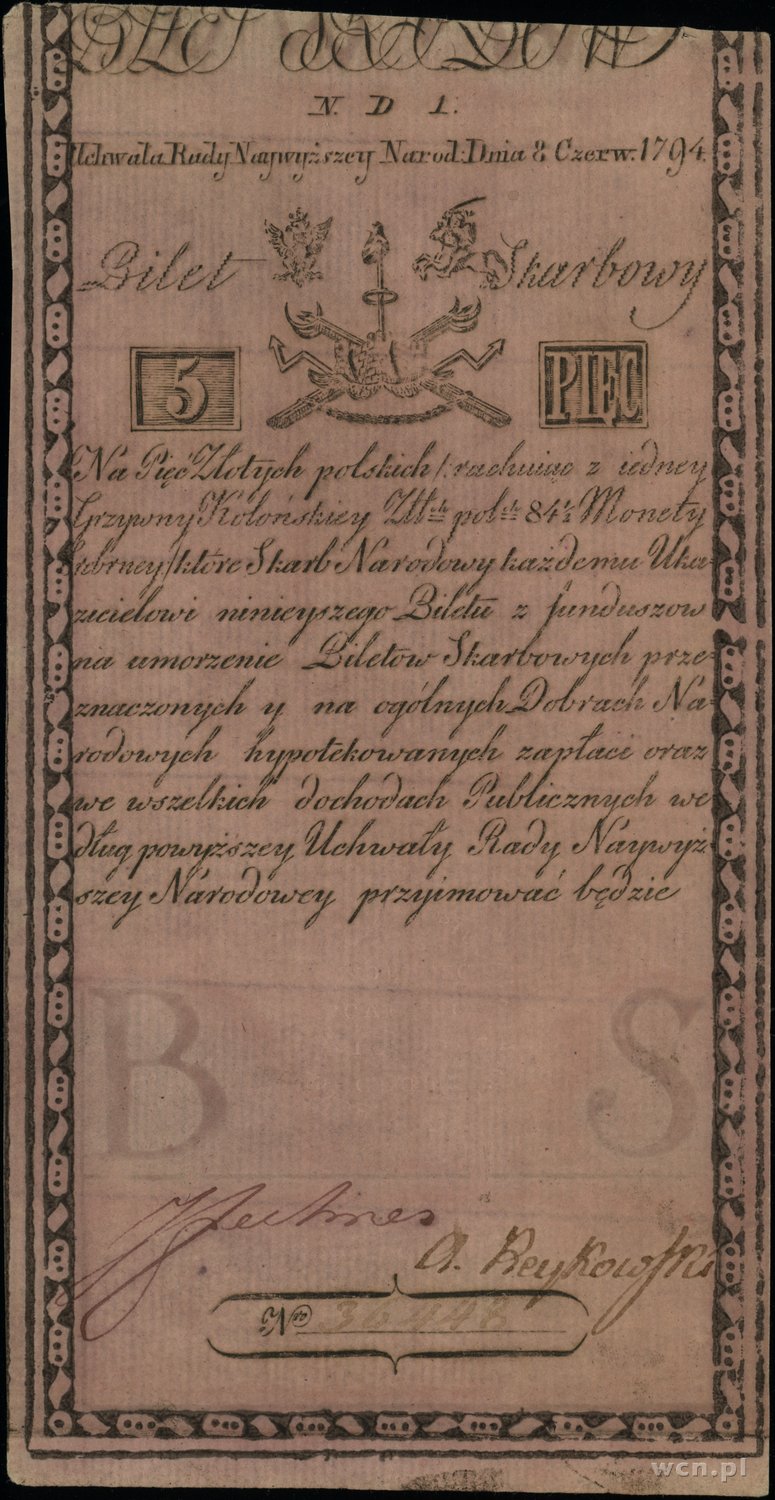 N. D 1.
Uchwała Rady Naywyższey Narod: Dnia 8 Czerw. 1794.
Bilet Skarbowy
5 PIĘC
Na Pięć Złotych polskich /: rachuiąc z iedney
Grzywny Kolońskiey Złł ch pol ch 84½ Monety
srebrney :/ które Skarb Narodowy każdemu Uka-
zicielowi ninieyszego Biletu z funduszow
na umorzenie Biletow Skarbowych prze-
znaczonych y na ogólnych Dobrach Na-
rodowych hypotekowanych zapłaci oraz
we wszelkich dochodach Publicznych we-
dług powyższey Uchwały Rady Naywyż-
szey Narodowey przyimować będzie
B S
A. Reykowski
Nro 36448
wcn.pl